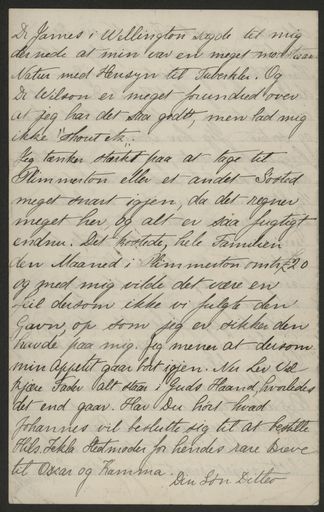 Dr James i Wellington sagde til mig
dernede at min var en meget modstaar
Natur med Hensyn til Tuberkler. Og
Dr Wilson er meget forundred over
at jeg har det saa godt, men bad mig
ikke "shout etc".
Jeg tænker stærkt paa at tage til
Plimmerton eller et andet Sosted
meget snart igjen, da det regner
meget her, og alt er saa fugtigt
endnu. Det kostede, hele Familien
den Maaned i Plimmerton omtr £20
og med mig vilde det være en
til dersom ikke vi fulgte den
Gavn, op som jeg er sikker den
havde paa mig. Jeg mener at dersom
min Appetit gaar bort igjen. Nu Lev Vel
Kjære Fader alt staar i Guds Haand, hvorledes
det end gaar. Har Du hørt hvad
Johannes vil beslutte sig til at bestille
Hils Thekla Stedmoder for hendes rare Breve
til Oscar og Kamma.
Din Søn Ditlev